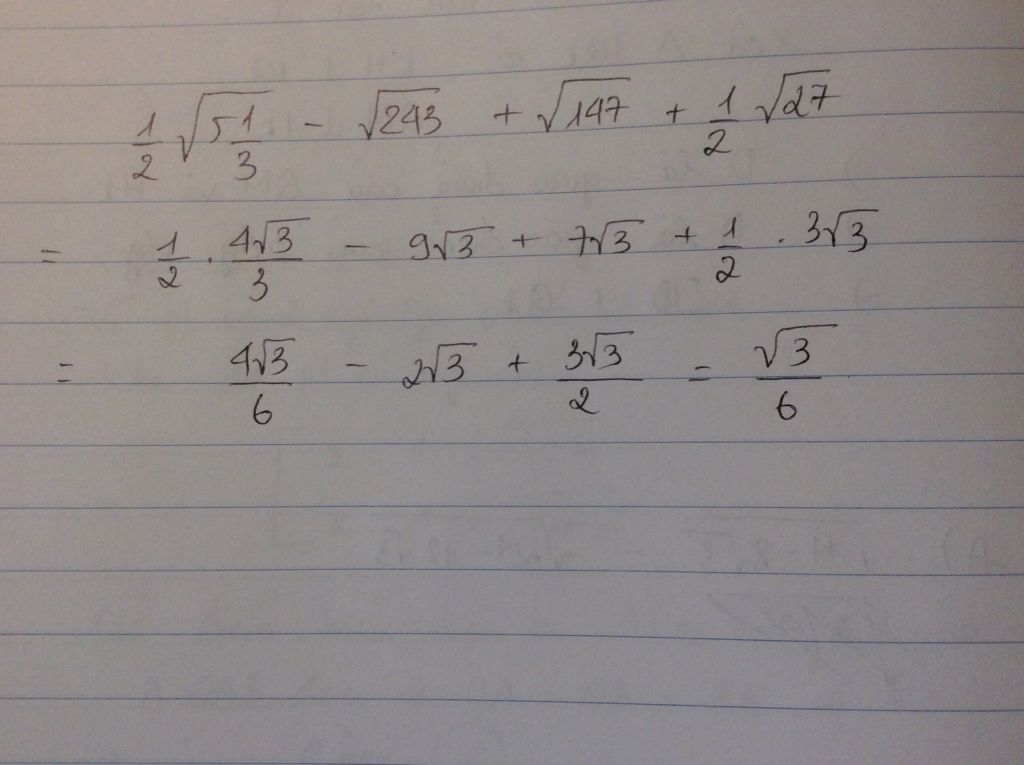 1/2 √(5 1/3) - √243 + √147 + 1/2 √27
= 1/2 . 4√3/3 - 9√3 + 7√3 + 1/2 . 3√3
= 4√3/6 - 2√3 + 3√3/2 = √3/6